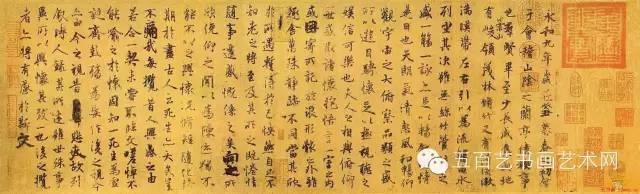 永和九年歲在癸丑暮春之初會
于會稽山陰之蘭亭脩稧事
也羣賢畢至少長咸集此地
有崇山峻領茂林脩竹又有清流激
湍暎帶左右引以為流觴曲水
列坐其次雖無絲竹管弦之
盛一觴一詠亦足以暢叙幽情
是日也天朗氣清惠風和暢仰
觀宇宙之大俯察品類之盛
所以遊目騁懷足以極視聽之
娛信可樂也夫人之相與俯仰
一世或取諸懷抱悟言一室之內
或因寄所託放浪形骸之外雖
趣舍萬殊靜躁不同當其欣
於所遇暫得於己怏然自足不
知老之將至及其所之既惓情
隨事遷感慨係之矣向之所欣
俛仰之閒以為陳迹猶不
能不以之興懷況脩短隨化終
期於盡古人云死生亦大矣豈
不痛哉每攬昔人興感之由
若合一契未嘗不臨文嗟悼不
能喻之於懷固知一死生為虛
誕齊彭殤為妄作後之視今
亦由今之視昔悲夫故列
叙時人錄其所述雖世殊事
異所以興懷其致一也後之攬
者亦將有感於斯文
五百艺书画艺术网